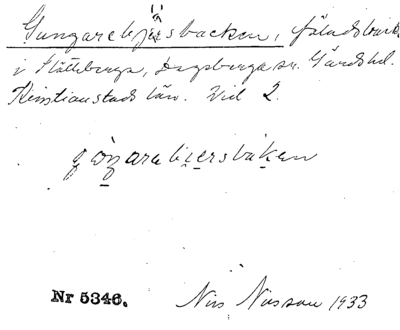 Gungarebjärsbacken, fäladsbacke
i Slätteberga, Degeberga sn. Gärds hd.
Kristianstads län. Vid 2.
Nr 5346. Nils Nilsson 1933